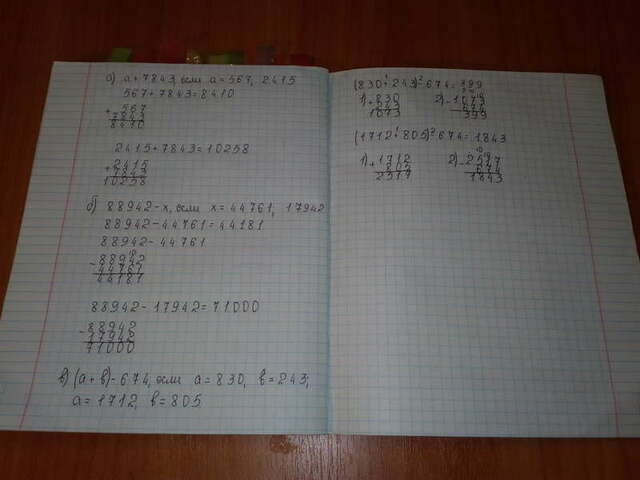 а) а + 7843, если а = 567, 2415
567 + 7843 = 8410
+ 567
7843
8430
2415 + 7843 = 10258
+ 2415
7843
10258
б) 88942 - х, если х = 44761, 17942
88942 - 44761 = 44181
88942 - 44761
- 88942
44761
44181
88942 - 17942 = 71000
- 88942
17942
71000
в) (а + в) - 674, если а = 830, в = 243,
а = 1712, в = 805
(830 + 243) - 674 = 399
1) + 830
243
1073
2) - 1073
674
399
(1712 + 805) - 674 = 1843
1) + 1712
805
2517
2) - 2517
674
1843